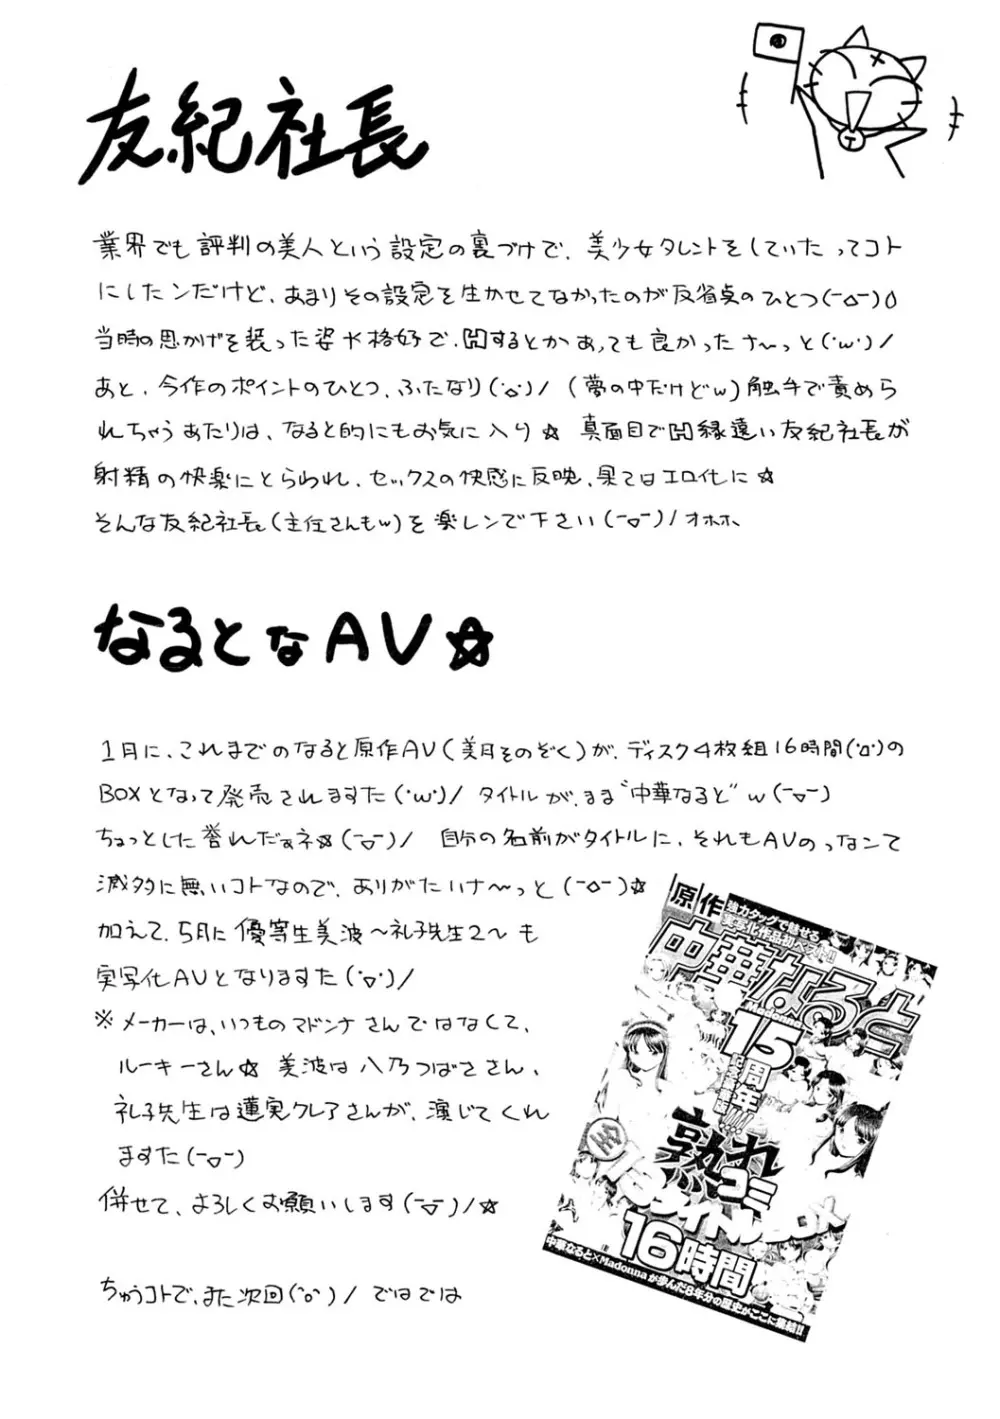 友紀社長
業界でも評判の美人という設定の裏づけで、美少女タレントをしていたってコト
にしたンだけど、あまりその設定を生かせてなかったのが反省点のひとつ(-△-)0
当時の思かげを装った姿や格好で、Hするとかあっても良かったナ〜っと(・w・)/
あと、今作のポイントのひとつ、ふたなり(°◇°)/ (夢の中だけどw)触手で責めら
れちゃうあたりは、なると的にもお気に入り☆ 真面目でH縁遠い友紀社長が
射精の快楽にとらわれ、セックスの快感に反映、果てはエロ化に☆
そんな友紀社長(主任さんもw)を楽しンで下さい(-▽-)/オホホ、
なるとなAV☆
1月に、これまでのなると原作AV(美月そのぞく)が、ディスク4枚組16時間(°Д°)の
BOXとなって発売されますた(・w・)/ タイトルが、まま"中華なると"w(-▽-)
ちょっとした誉れだぁネ☆(-▽-)/ 自分の名前がタイトルに、それもAVのっなンて
滅多に無いコトなので、ありがたいナ〜っと(-△-)☆
加えて、5月に優等生美波〜礼子先生2〜も
実写化AVとなりますた(°▽°)/
※メーカーは、いつものマドンナさんではなくて、
ルーキーさん☆ 美波は八乃つばささん、
礼子先生は蓮実クレアさんが、演じてくれ
ますた(-▽-)
併せて、よろしくお願いします(-▽-)/☆
ちゅうコトで、また次回(°o°)/ ではでは
原作
強力タッグで魅せる
実写化作品初ベスト!!
中華なると
Madonna
15周年
熟れコミ
全13タイトルBOX
16時間
中華なると×Madonnaが歩んだ8年分の歴史がここに集結!!